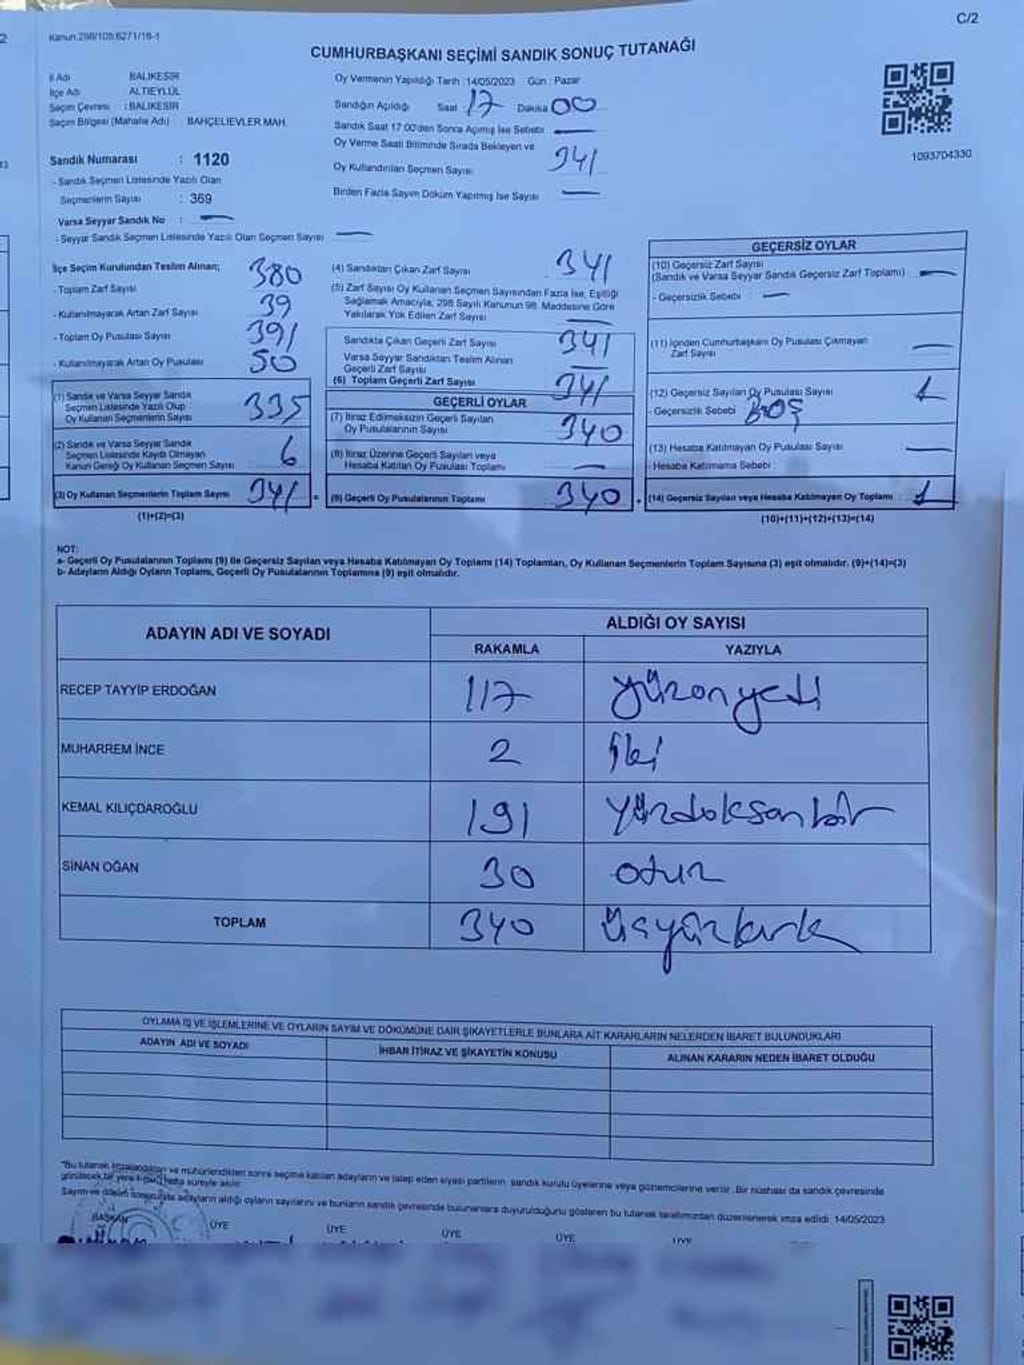 C/2
Kanun 298/105,6271/18-1
CUMHURBAŞKANI SEÇİMİ SANDIK SONUÇ TUTANAĞI
İl Adı BALIKESİR
İlçe Adı ALTIEYLÜL
Seçim Çevresi : BALIKESİR
Seçim Bölgesi (Mahalle Adı) BAHÇELİEVLER MAH.
Sandık Numarası : 1120
- Sandık Seçmen Listesinde Yazılı Olan
Seçmenlerin Sayısı : 369
Varsa Seyyar Sandık No : —
- Seyyar Sandık Seçmen Listesinde Yazılı Olan Seçmen Sayısı —
Oy Vermenin Yapıldığı Tarih : 14/05/2023 Gün : Pazar
Sandığın Açıldığı Saat 17 Dakika 00
Sandık Saat 17:00'den Sonra Açılmış İse Sebebi —
Oy Verme Saati Bitiminde Sırada Bekleyen ve
Oy Kullandırılan Seçmen Sayısı 341
Birden Fazla Sayım Döküm Yapılmış İse Sayısı —
1093704330
İlçe Seçim Kurulundan Teslim Alınan;
- Toplam Zarf Sayısı 380
- Kullanılmayarak Artan Zarf Sayısı 39
- Toplam Oy Pusulası Sayısı 391
- Kullanılmayarak Artan Oy Pusulası 50
(1) Sandık ve Varsa Seyyar Sandık
Seçmen Listesinde Yazılı Olup
Oy Kullanan Seçmenlerin Sayısı 335
(2) Sandık ve Varsa Seyyar Sandık
Seçmen Listesinde Kayıtlı Olmayan
Kanun Gereği Oy Kullanan Seçmen Sayısı 6
(3) Oy Kullanan Seçmenlerin Toplam Sayısı 341 =
(1)+(2)=(3)
(4) Sandıktan Çıkan Zarf Sayısı 341
(5) Zarf Sayısı Oy Kullanan Seçmen Sayısından Fazla İse, Eşitliği
Sağlamak Amacıyla, 298 Sayılı Kanunun 98. Maddesine Göre
Yakılarak Yok Edilen Zarf Sayısı —
Sandıkta Çıkan Geçerli Zarf Sayısı 341
Varsa Seyyar Sandıktan Teslim Alınan
Geçerli Zarf Sayısı —
(6) Toplam Geçerli Zarf Sayısı 341
GEÇERLİ OYLAR
(7) İtiraz Edilmeksizin Geçerli Sayılan
Oy Pusulalarının Sayısı 340
(8) İtiraz Üzerine Geçerli Sayılan veya
Hesaba Katılan Oy Pusulası Toplamı —
(9) Geçerli Oy Pusulalarının Toplamı 340 +
GEÇERSİZ OYLAR
(10) Geçersiz Zarf Sayısı
(Sandık ve Varsa Seyyar Sandık Geçersiz Zarf Toplamı) —
- Geçersizlik Sebebi —
(11) İçinden Cumhurbaşkanı Oy Pusulası Çıkmayan
Zarf Sayısı —
(12) Geçersiz Sayılan Oy Pusulası Sayısı 1
- Geçersizlik Sebebi BOŞ
(13) Hesaba Katılmayan Oy Pusulası Sayısı —
- Hesaba Katılmama Sebebi
(14) Geçersiz Sayılan veya Hesaba Katılmayan Oy Toplamı 1
(10)+(11)+(12)+(13)=(14)
NOT:
a- Geçerli Oy Pusulalarının Toplamı (9) ile Geçersiz Sayılan veya Hesaba Katılmayan Oy Toplamı (14) Toplamları, Oy Kullanan Seçmenlerin Toplam Sayısına (3) eşit olmalıdır. (9)+(14)=(3)
b- Adayların Aldığı Oyların Toplamı, Geçerli Oy Pusulalarının Toplamına (9) eşit olmalıdır.
ADAYIN ADI VE SOYADI ALDIĞI OY SAYISI
RAKAMLA YAZIYLA
RECEP TAYYİP ERDOĞAN 117 yüzonyedi
MUHARREM İNCE 2 iki
KEMAL KILIÇDAROĞLU 191 yüzdoksanbir
SİNAN OĞAN 30 otuz
TOPLAM 340 üçyüzkırk
OYLAMA İŞ VE İŞLEMLERİNE VE OYLARIN SAYIM VE DÖKÜMÜNE DAİR ŞİKAYETLERLE BUNLARA AİT KARARLARIN NELERDEN İBARET BULUNDUKLARI
ADAYIN ADI VE SOYADI İHBAR İTİRAZ VE ŞİKAYETİN KONUSU ALINAN KARARIN NEDEN İBARET OLDUĞU
"Bu tutanak imzalandıktan ve mühürlendikten sonra seçime katılan adayların ve talep eden siyasi partilerin, sandık kurulu üyelerine veya gözlemcilerine verilir. Bir nüshası da sandık çevresinde
görülecek bir yere 1 (bir) hafta süreyle asılır.
Sayım ve döküm sonucuyla adayların aldığı oyların sayılarını ve bunların sandık çevresinde bulunanlara duyurulduğunu gösteren bu tutanak tarafımızdan düzenlenerek imza edildi. 14/05/2023
BAŞKAN ÜYE ÜYE ÜYE ÜYE ÜYE